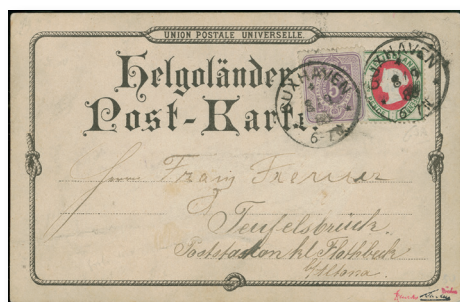 UNION POSTALE UNIVERSELLE.
Helgoländer
Post-Karte.
CUXHAVEN
6-7N.
CUXHAVEN
6-7N.
Herrn Franz
Teufelsbrück.
Poststation kl. Flottbeck
b/Altona.